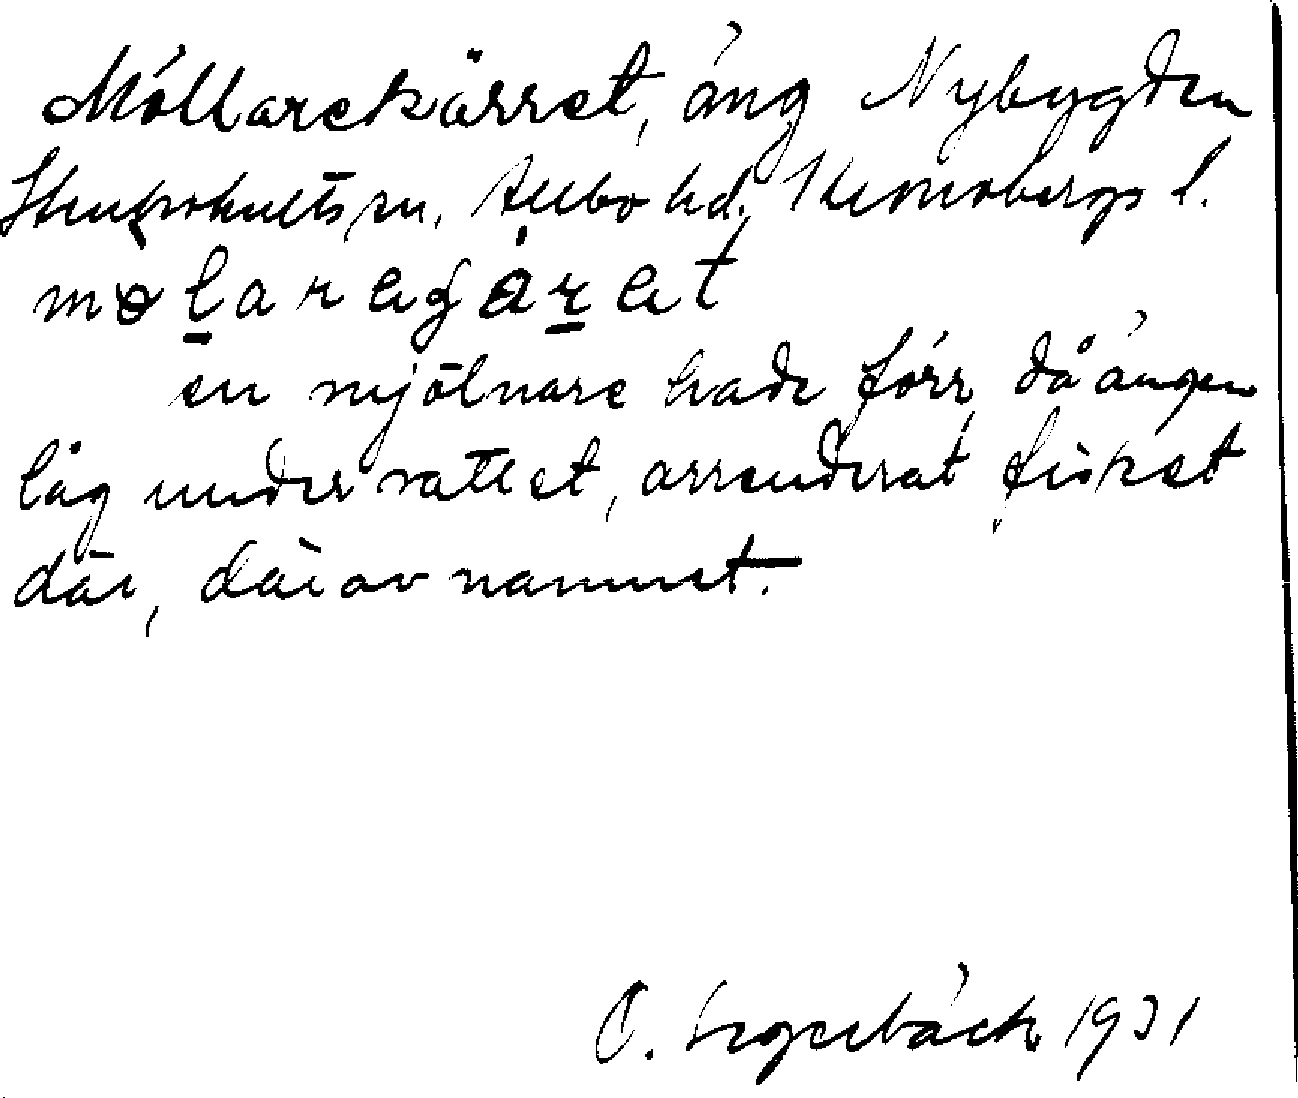 Möllarekärret, äng Nybygden
Stenbrohults sn. Allbo hd. Kronobergs l.
en mjölnare hade förr, då ängen
låg under vattnet, arrenderat fisket
där, därav namnet.
O. Segerbäck 1931